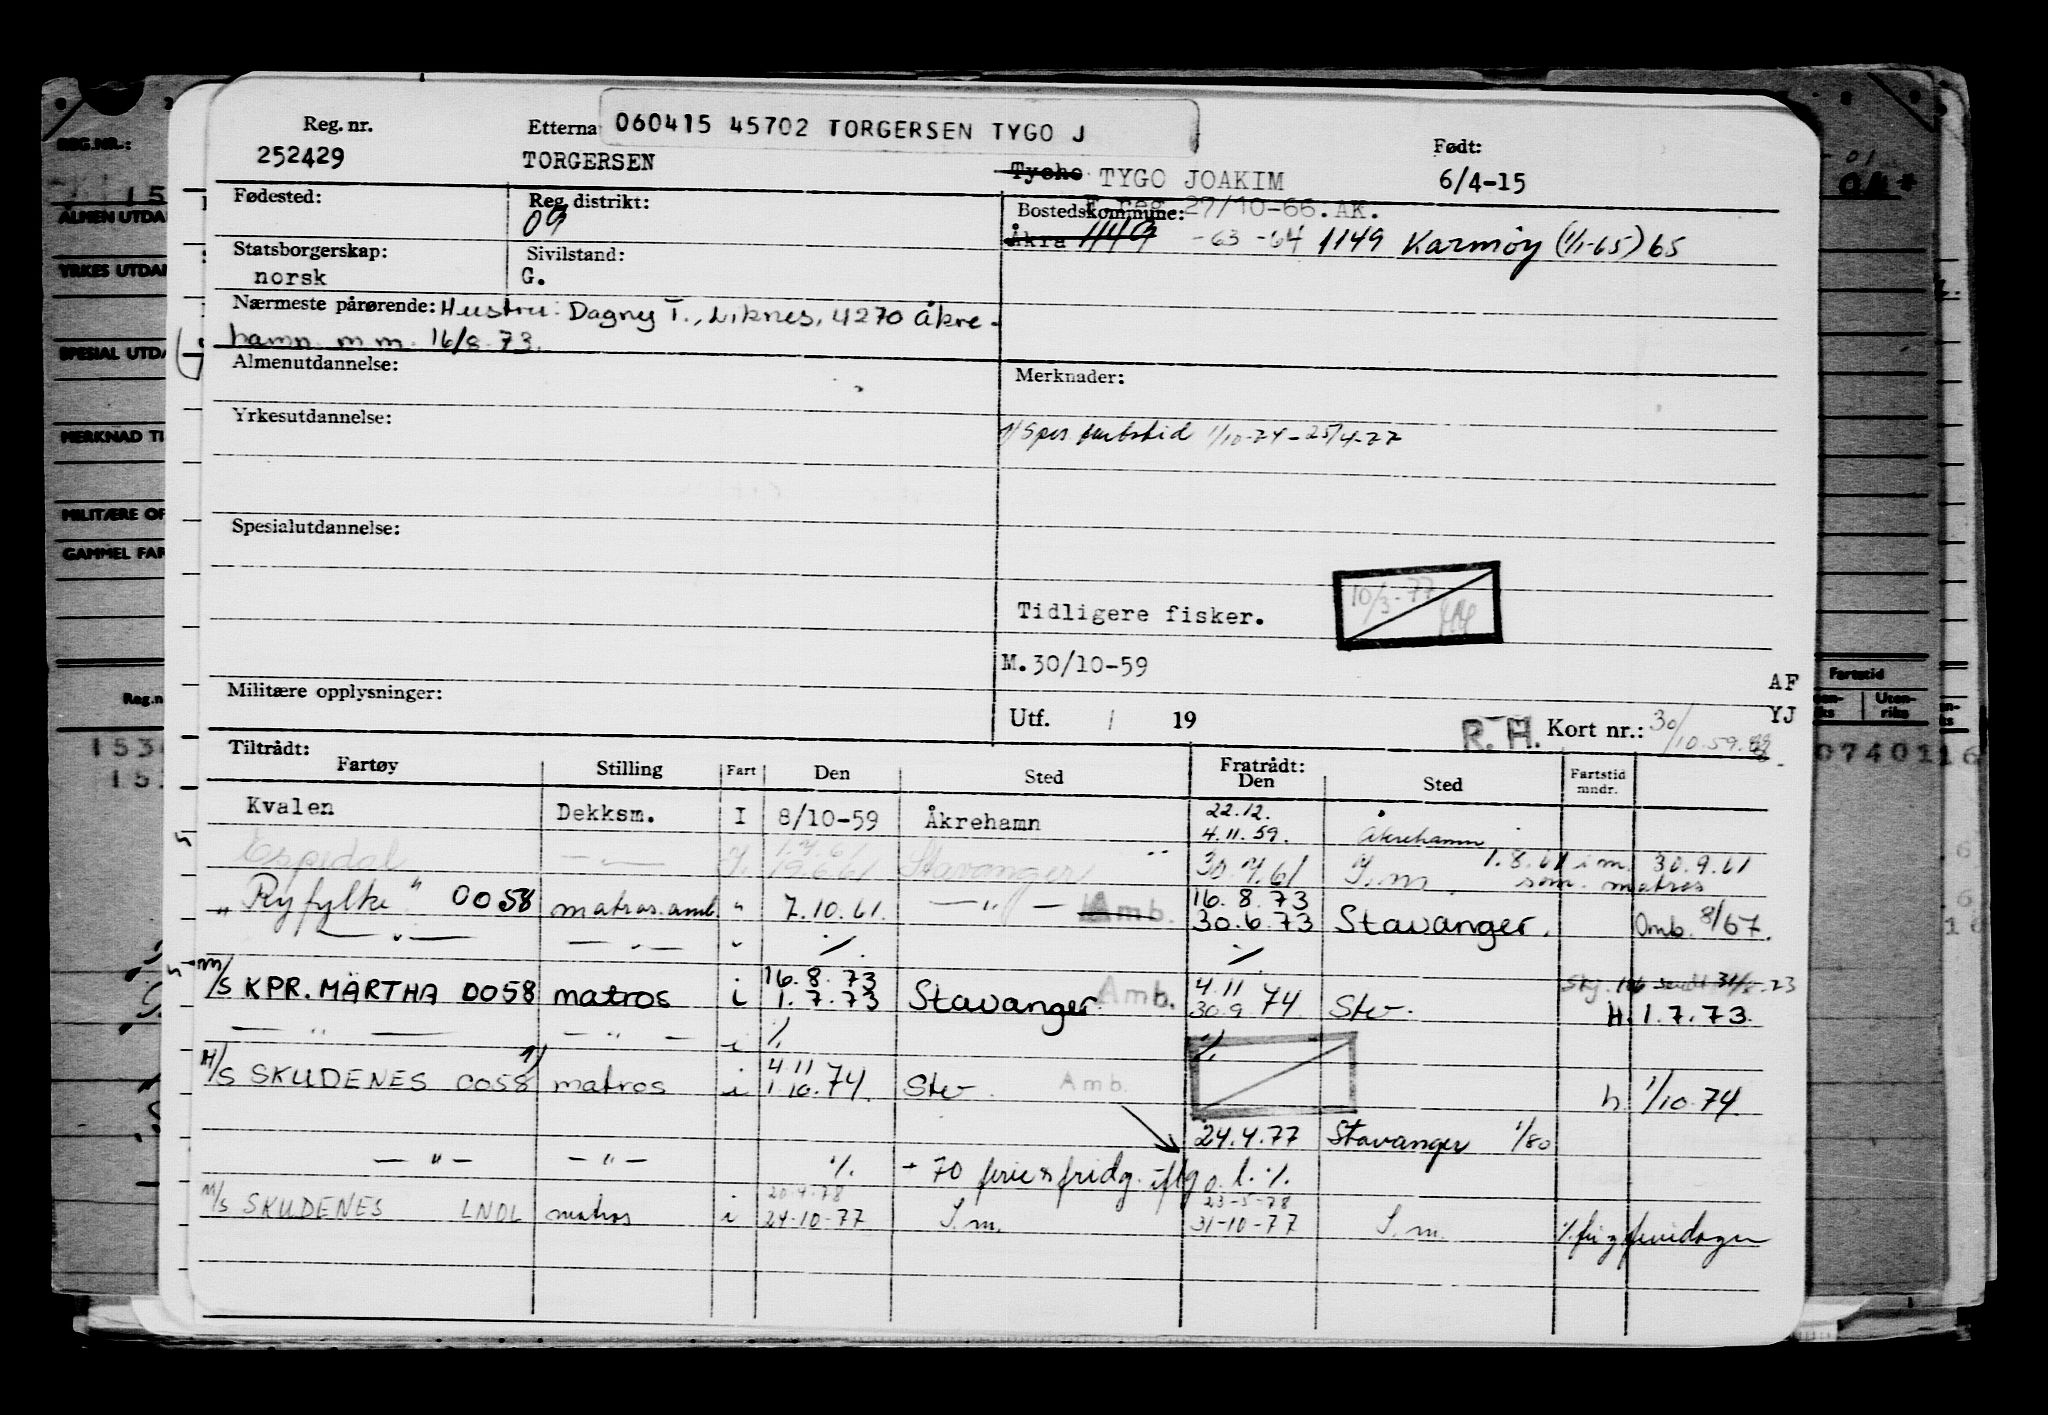 Reg. nr.
252429
Etterna
060415 45702 TORGERSEN TYGO J
TORGERSEN
Tycho TYGO JOAKIM
Født:
6/4-15
Fødested:
Reg. distrikt:
09
F.reg. 27/10-66. AK.
Bostedskommune:
Åkra 1149 -63 -64 1149 Karmøy (1/1-65) 65
Statsborgerskap:
norsk
Sivilstand:
G.
Nærmeste pårørende: Hustru: Dagny T., Liknes, 4270 Åkre-
hamn. m.m. 16/8.73.
Almenutdannelse:
Merknader:
Yrkesutdannelse:
1) Spes fartstid 1/10-74 - 25/4-77
Spesialutdannelse:
10/3-77
Tidligere fisker.
M.30/10-59
Militære opplysninger:
AF
YJ
Utf. / 19
R. H. Kort nr.: 30/10.59.
Tiltrådt:
Fartøy Stilling Fart Den Sted
Fratrådt:
Den Sted
Fartstid
mndr.
Kvalen Dekksm. I 8/10-59 Åkrehamn 22.12. 4.11.59. Åkrehamn
Espedal — " — 1.7.61 19.6.61 Stavanger " 30.7.61 S.m. 1.8.61 i m. 30.9.61
som matros
" Ryfylke " 0058 matros.amb. " 7.10.61. — " — Amb. 16.8.73 30.6.73 Stavanger. Omb. 8/67.
— " — — " — " %. %.
M/S KPR. MÄRTHA 0058 matros i 16.8.73 1.7.73 Stavanger Amb. 4.11 30.9.74 Stv. H. 1.7.73.
— " — — " — i %. %.
M/S SKUDENES 0058 1) matros i 4.11 1.10.74. Stv. Amb. h. 1/10.74
24.4.77 Stavanger 1/80
— " — — " — %. + 70 ferie & fridg. iflg o.l. %.
M/S SKUDENES LNDL matros i 20.4.78 24-10-77 S.m. 23-5-78 31-10-77 S.m.
REG.NR.:
15
ALMEN UTDA
YRKES UTDA
SPESIAL UTDA
MERKNAD TI
MILITÆRE OP
GAMMEL FAR
Reg.n
153
15
Fartstid
Uten-
riks
0740116